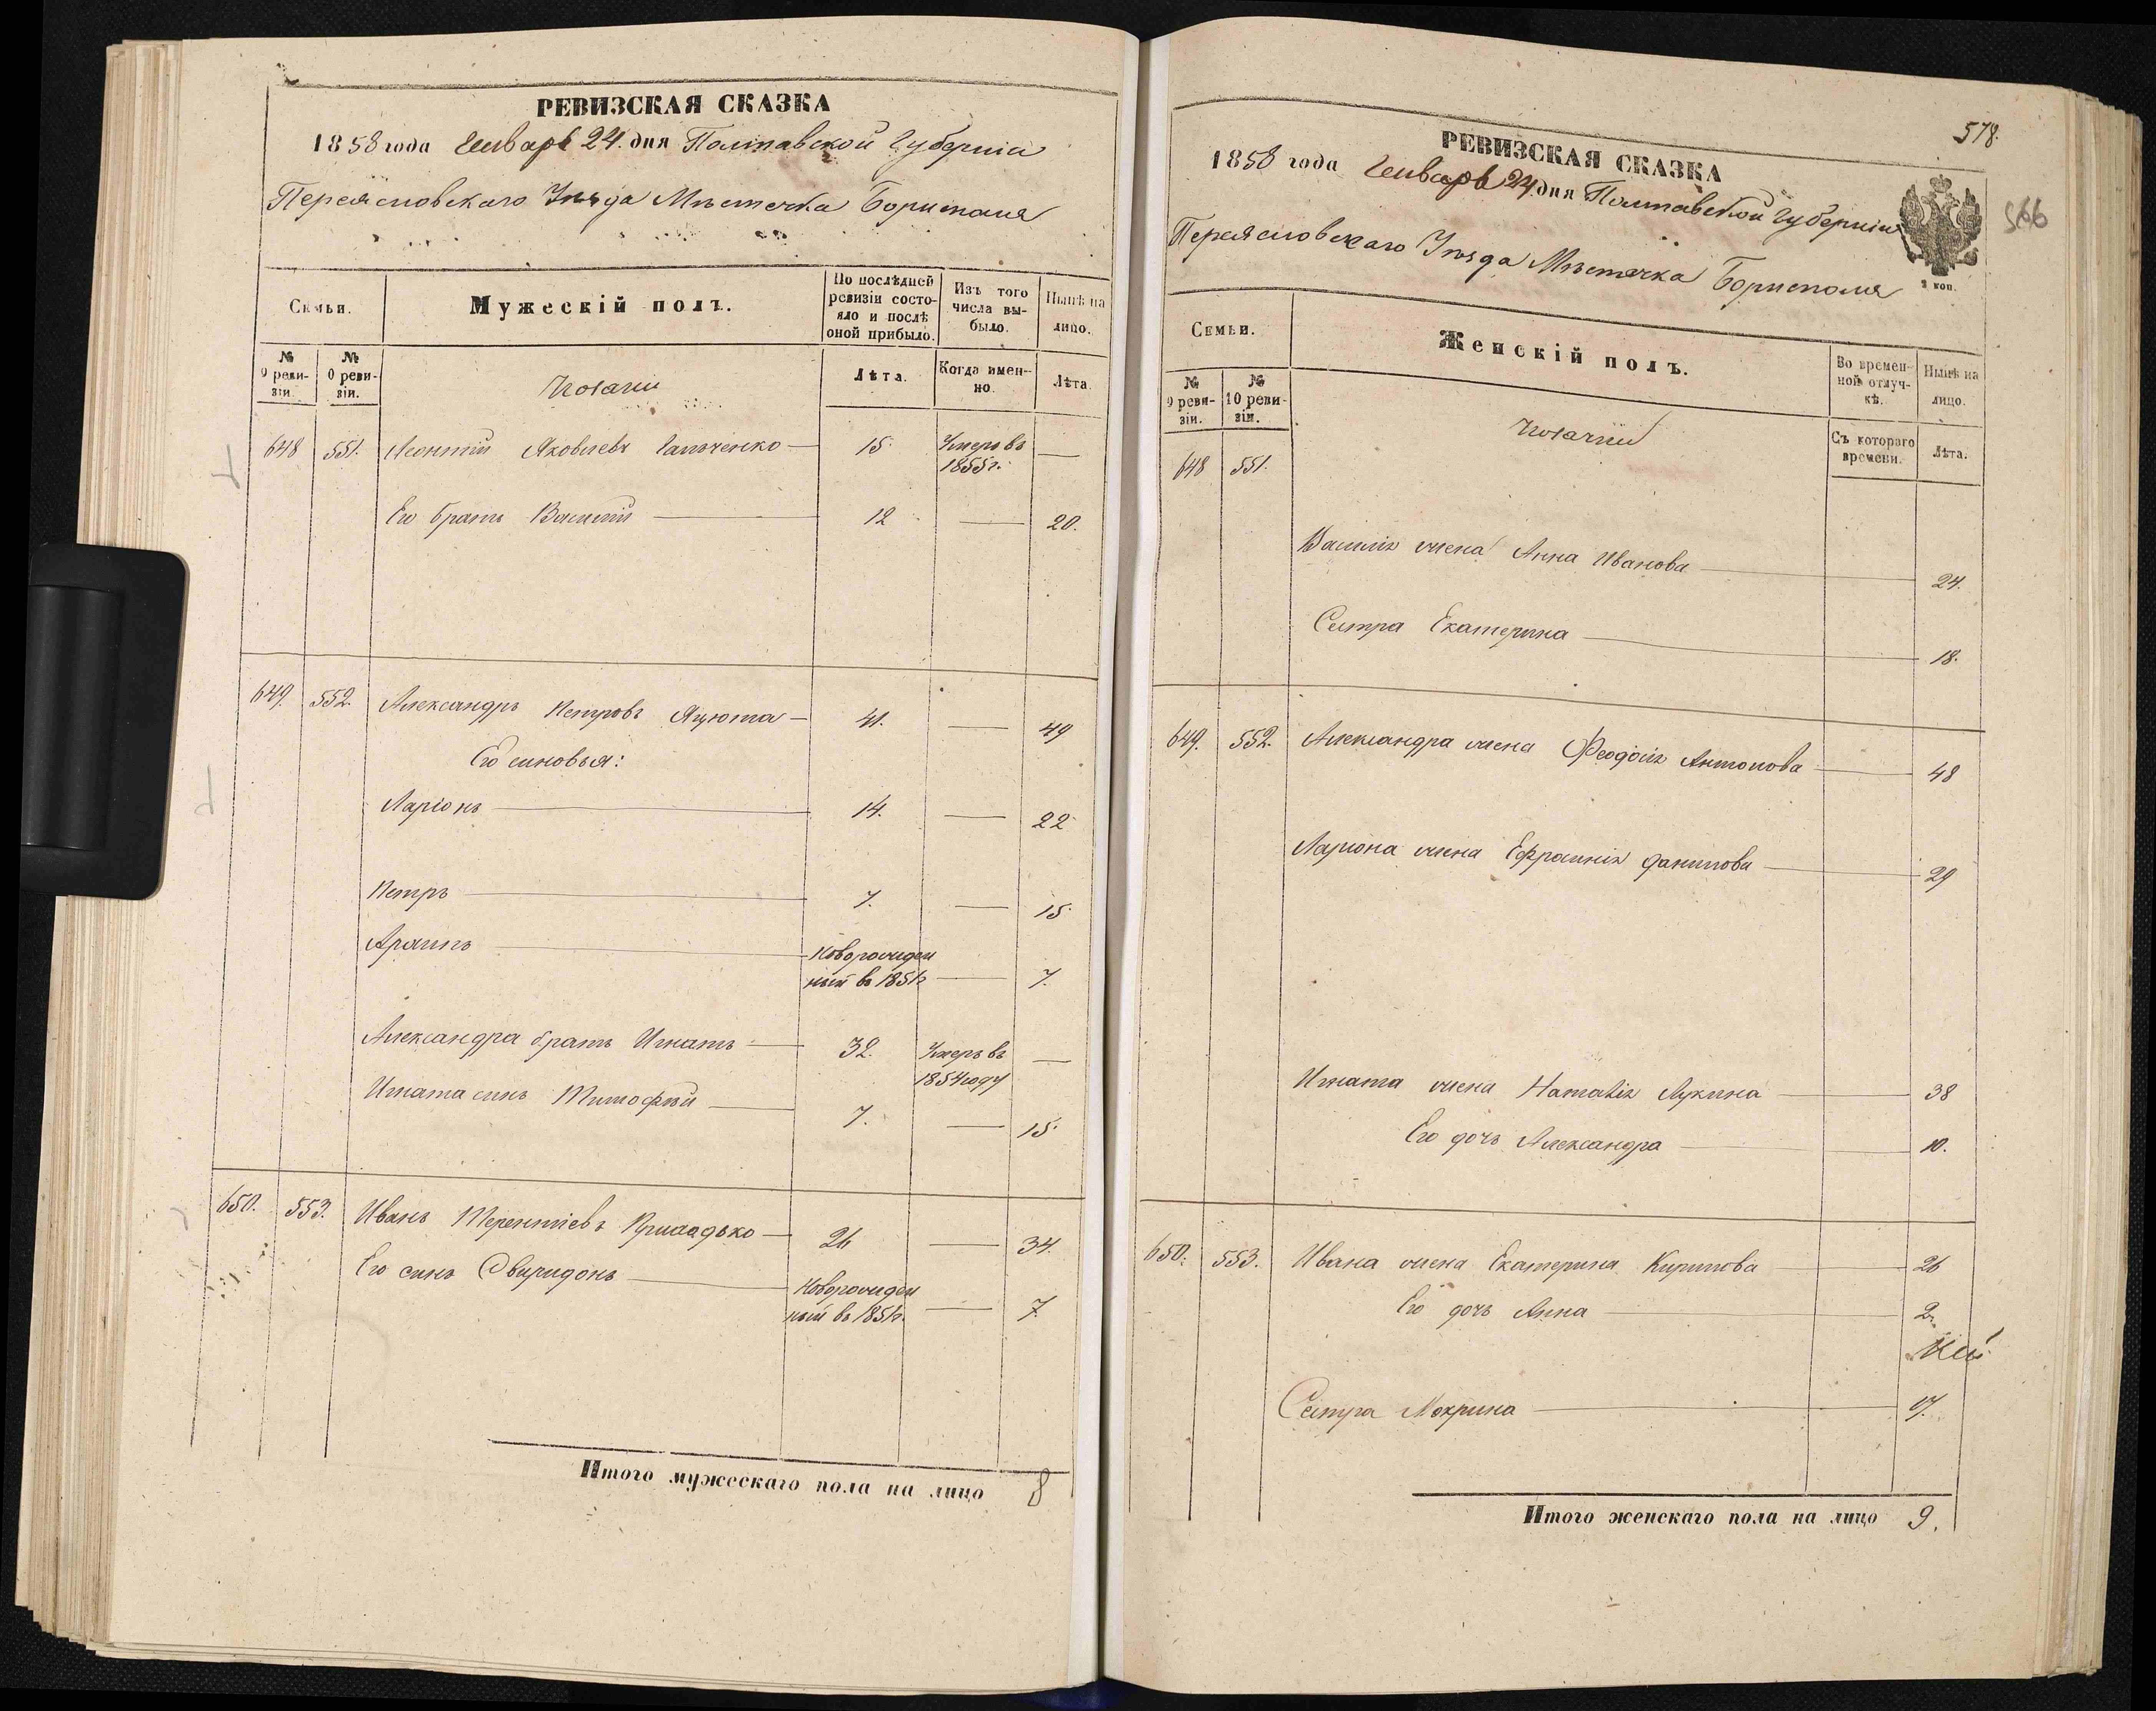 РЕВИЗСКАЯ СКАЗКА
1858 года Генваря 24. дня Полтавской Губерніи
Переясловскаго Уѣзда Мѣстечка Борисполя
Семьи.
Мужескій полъ.
По послѣдней ревизіи состояло и послѣ оной прибыло.
Изъ того числа выбыло.
Нынѣ на лицо.
№ 9 ревизіи.
№ 10 ревизіи.
Козаки
Лѣта.
Когда именно.
Лѣта.
648 551. Леонтій Яковлевъ Гальченко — 15. Умеръ въ 1855 г. —
Его братъ Василій — 12 — 20.
649. 552. Александръ Петровъ Яцюта — 41. — 49
Его сыновья:
Ларіонъ — 14. — 22
Петръ — 7. — 15.
Новорожден
ный въ 1851 г — 7.
Александра братъ Игнатъ — 32. Умеръ въ 1854 году —
Игната сынъ Тимофѣй — 7. — 15.
650. 553. Иванъ Терентіевъ — 26 — 34.
Его сынъ Свиридонъ — Новорожден
ный въ 1851 г. — 7.
Итого мужескаго пола на лицо 8
578.
566
РЕВИЗСКАЯ СКАЗКА
1858 года Генваря 24 дня Полтавской Губерніи
Переясловскаго Уѣзда Мѣстечка Борисполя
2 коп.
Семьи.
Женскій полъ.
Во временной отлучкѣ.
Нынѣ на лицо.
№ 9 ревизіи.
№ 10 ревизіи.
Козачки
Съ котораго времени.
Лѣта.
648 551.
Василія жена Анна Иванова — 24.
Сестра Екатерина — 18.
649. 552. Александра жена Феодосія Антонова — 48
Ларіона жена Ефросинія Данилова — 29
Игната жена Наталія Лукина — 38
Его дочь Александра — 10.
650. 553. Ивана жена Екатерина Кирилова — 26
Его дочь Анна — 2
Сестра Мокрина — 17.
Итого женскаго пола на лицо 9.